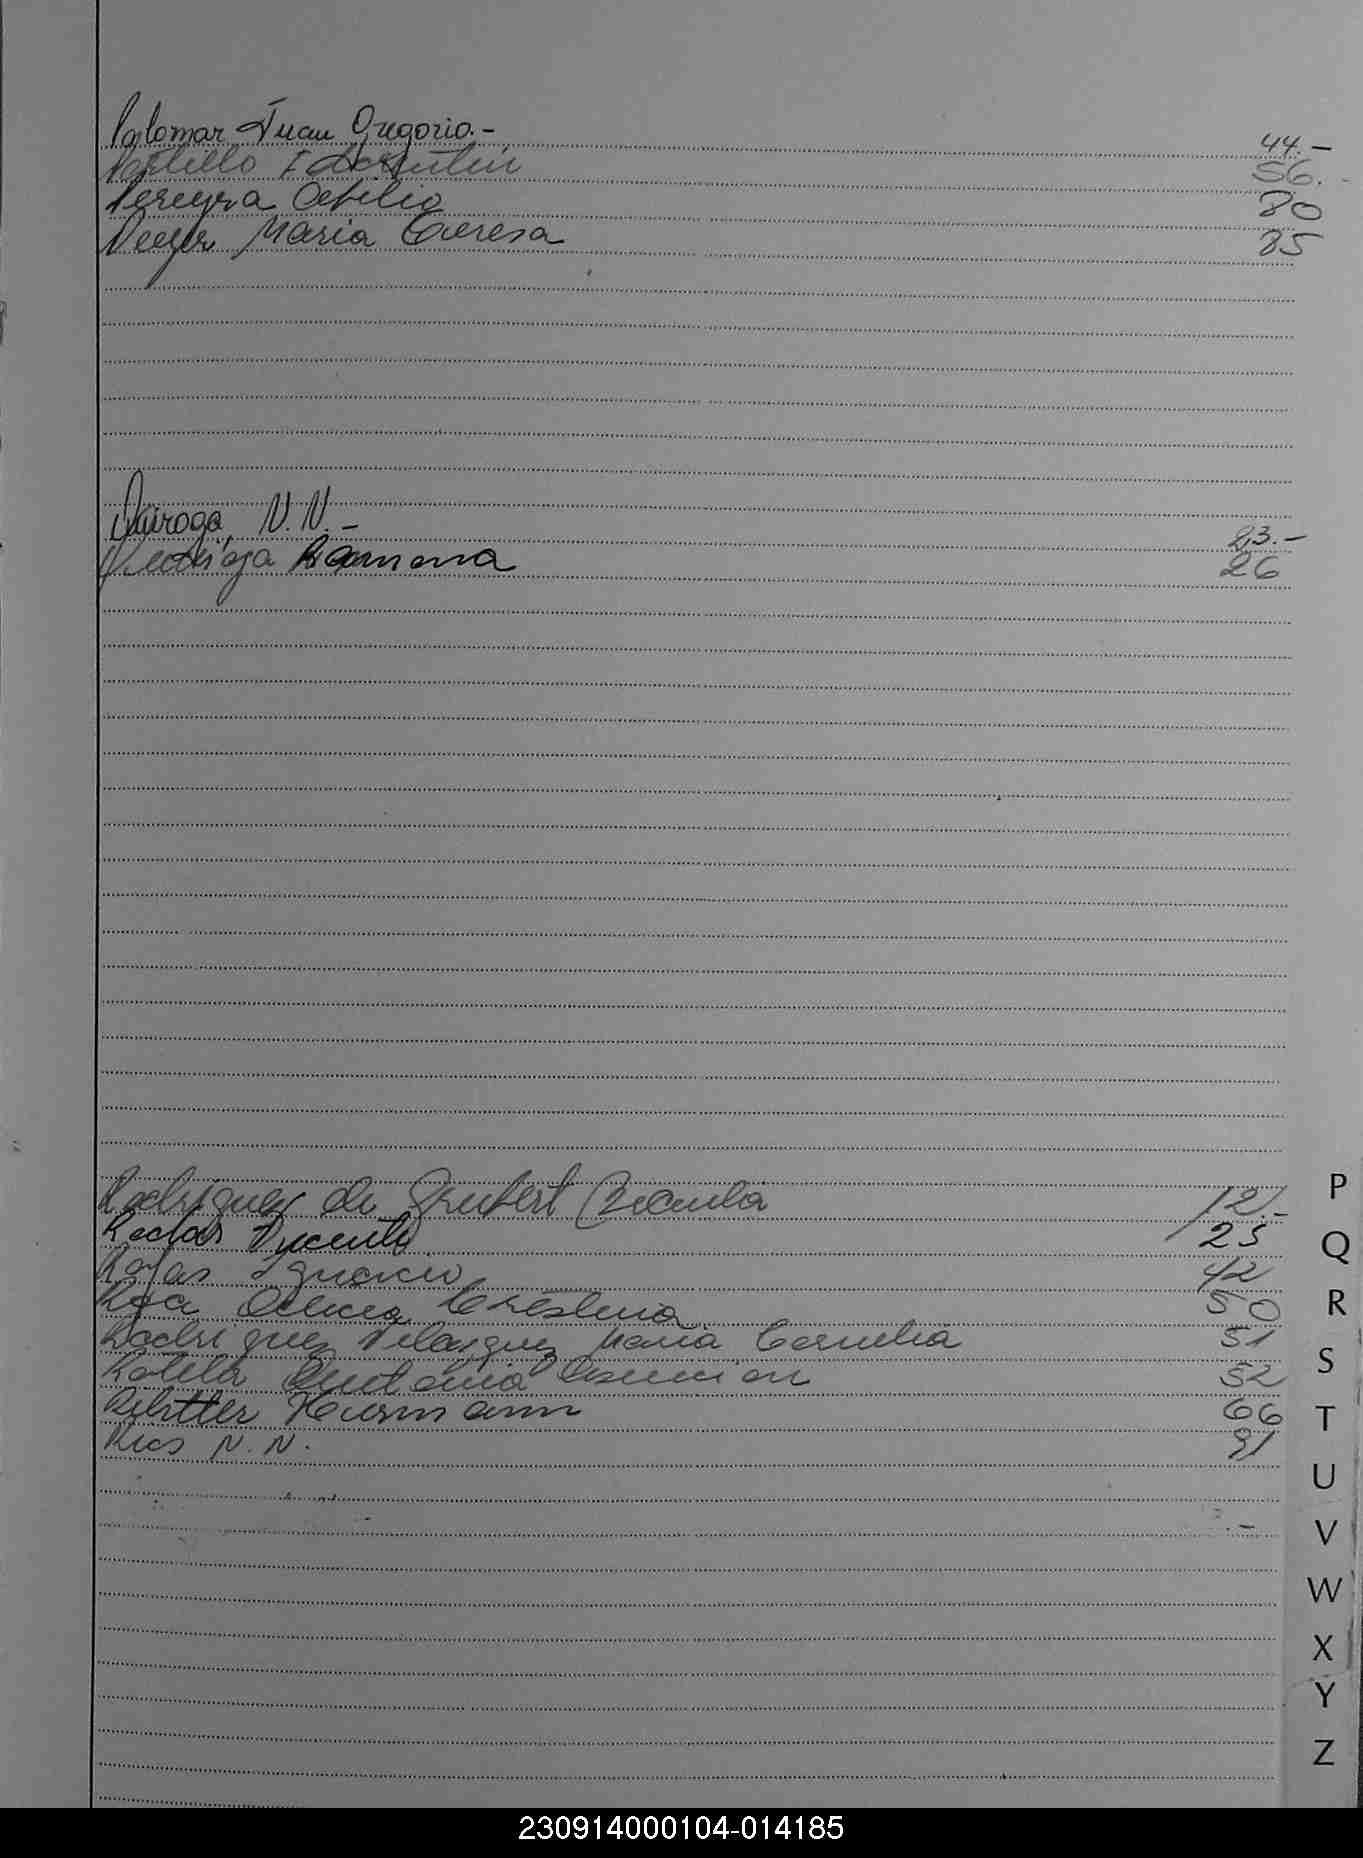 Palomar Juan Gregorio.- 44.-
Portillo 56.
Pereyra Abilio 80
María Teresa 85
Quiroga, N.N.- 23.-
Ramona 26
Rodriguez de Grubert 12.-
Vicente 25
Rojas Ignacio 42
Roa Cristina 50
Rodriguez Velasquez María Cornelia 51
Rotela Antonia Asuncion 52
Hermann 66
Rios N.N. 91
P
Q
R
S
T
U
V
W
X
Y
Z
230914000104-014185